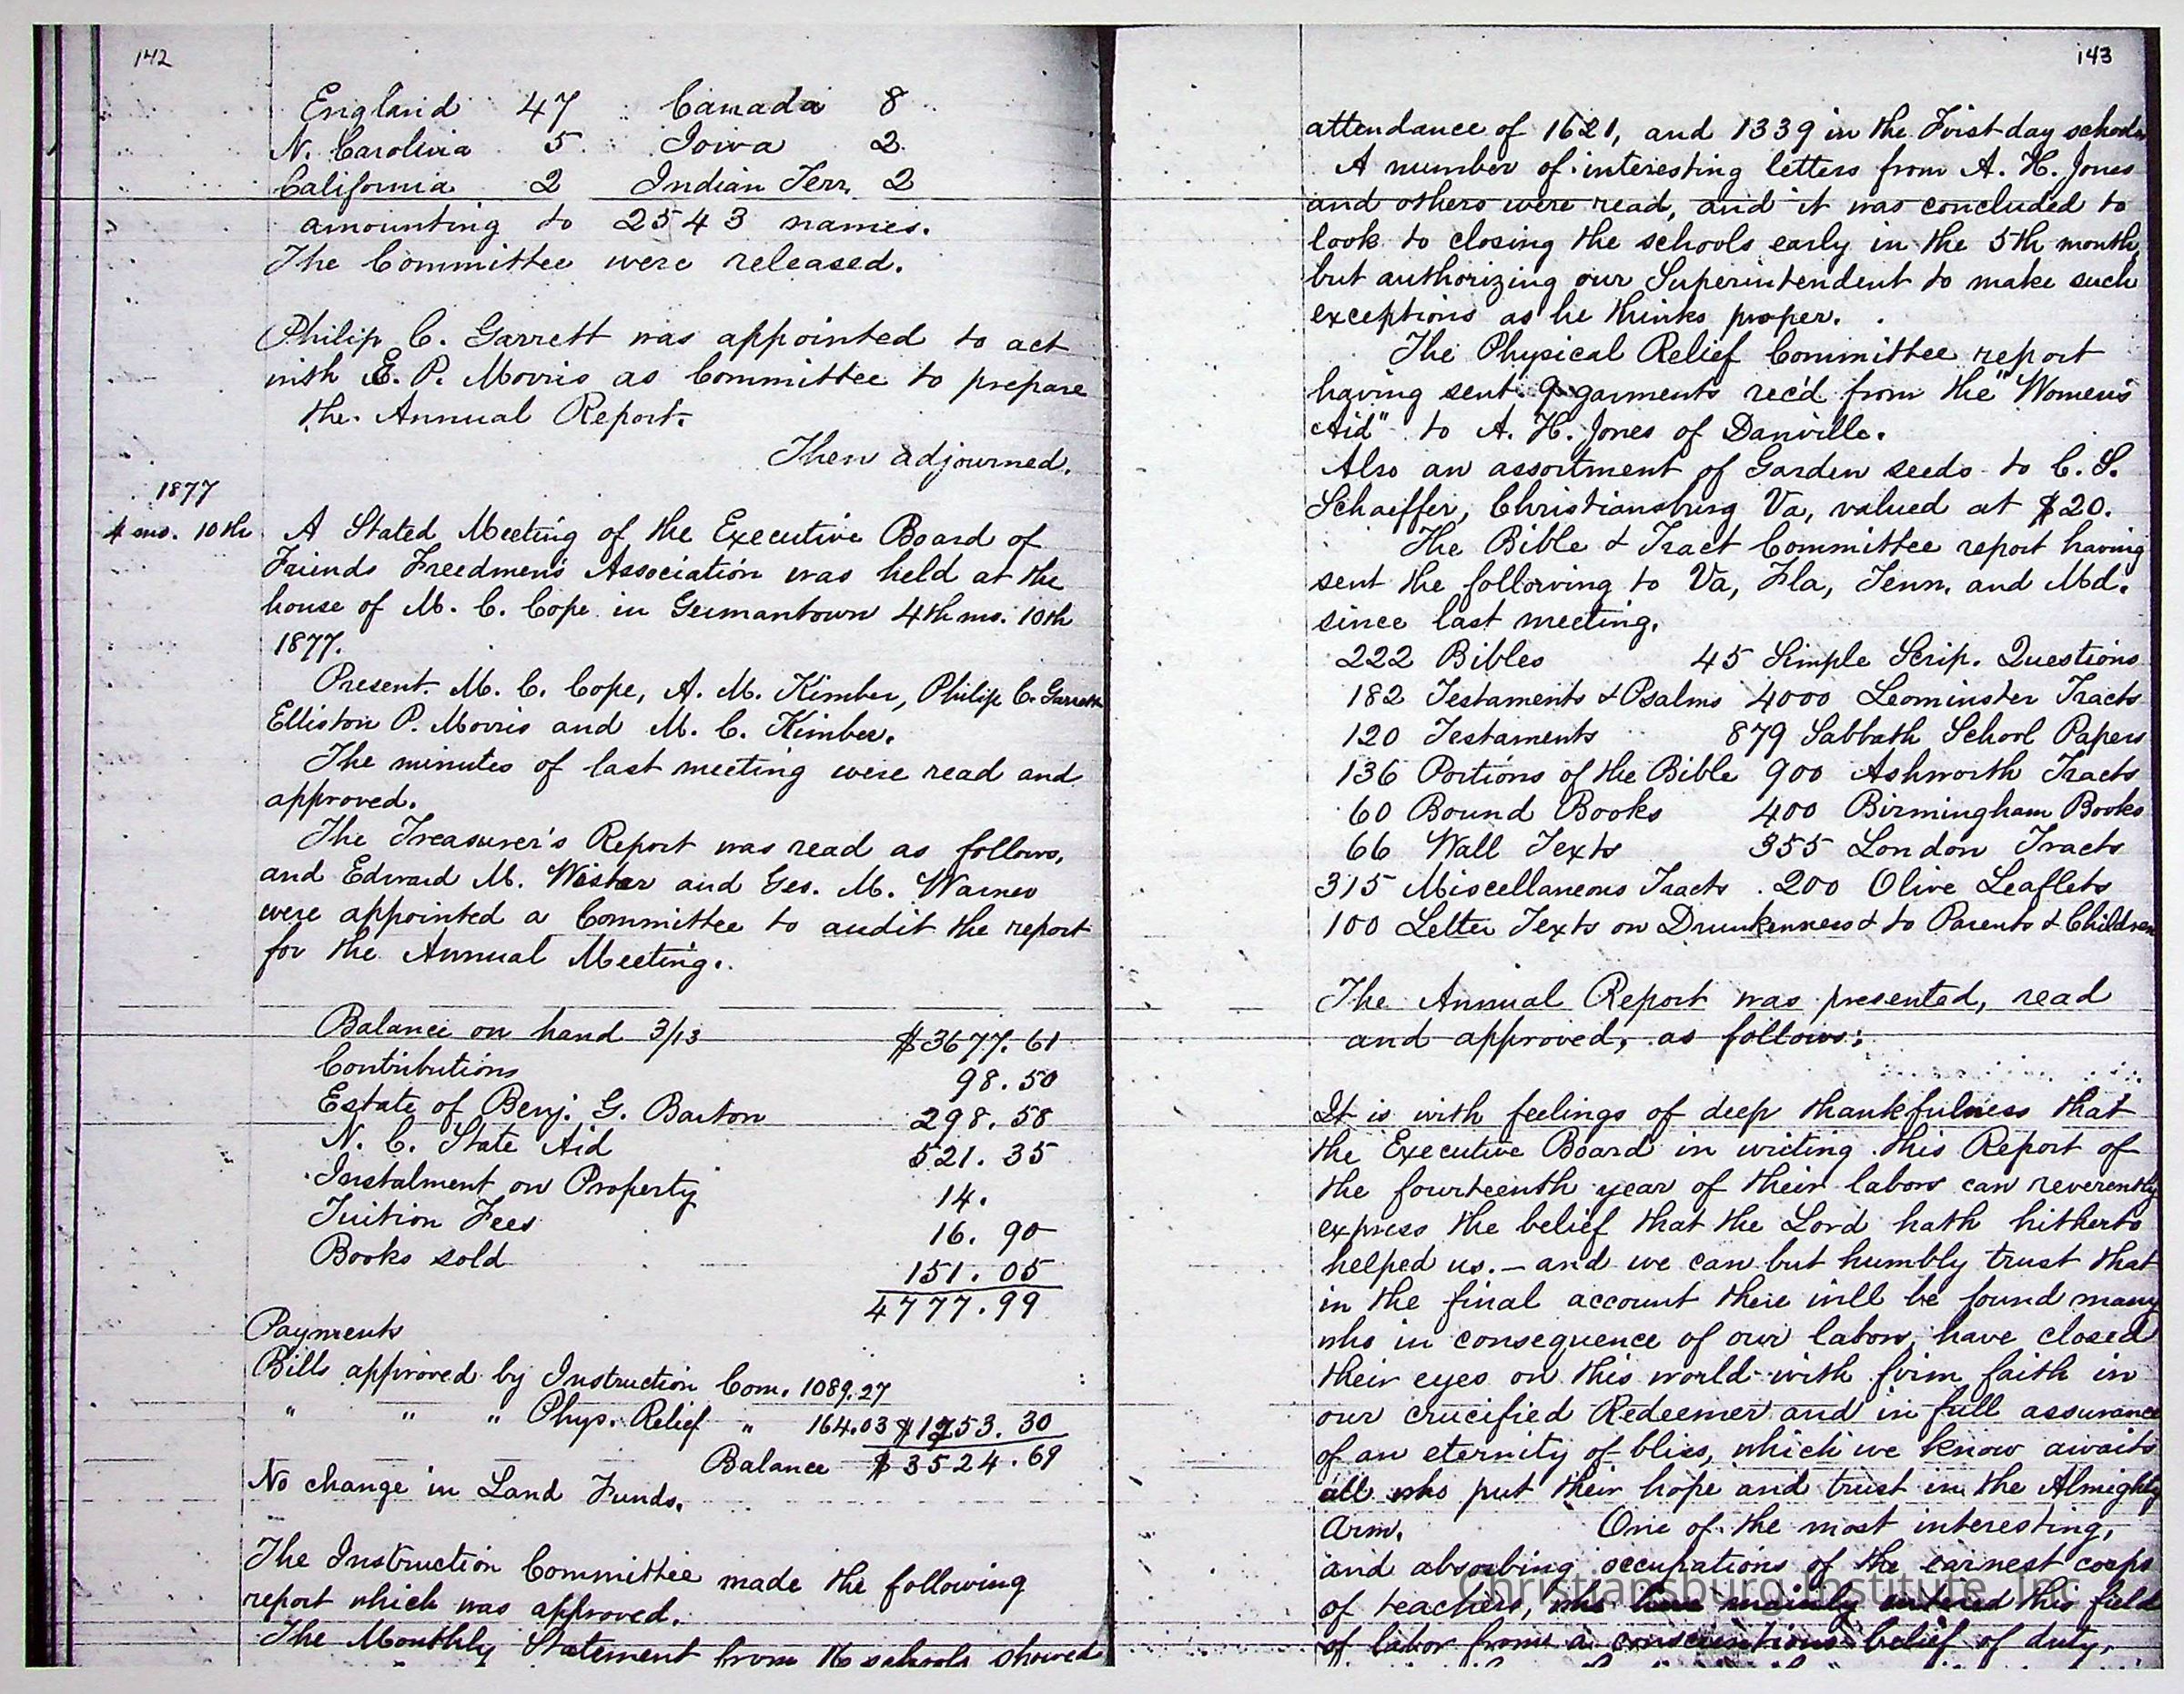 142
England 47 Canada 8
N. Carolina 5 Iowa 2
California 2 Indian Terr. 2
amounting to 2543 names.
The Committee were released.
Philip C. Garrett was appointed to act
with E. P. Morris as Committee to prepare
the Annual Report.
Then adjourned.
1877
4 mo. 10th A Stated Meeting of the Executive Board of
Friends Freedmen's Association was held at the
house of M. C. Cope in Germantown 4th mo. 10th
1877.
Present. M. C. Cope, A. M. Kimber, Philip C. Garrett
Elliston P. Morris and M. C. Kimber.
The minutes of last meeting were read and
approved.
The Treasurer's Report was read as follows,
and Edward M. Wistar and Geo. M. Warner
were appointed a Committee to audit the report
for the Annual Meeting.
Balance on hand 3/13 $3677.61
Contributions 98.50
Estate of Benj. G. Barton 298.58
N. C. State Aid 521.35
Instalment on Property 14.
Tuition Fees 16.90
Books sold 151.05
4777.99
Payments
Bills approved by Instruction Com. 1089.27
" " " Phys. Relief " 164.03 $1253.30
Balance $3524.69
No change in Land Funds.
The Instruction Committee made the following
report which was approved.
The Monthly Statement from 16 schools showed
143
attendance of 1621, and 1339 in the First-day schools
A number of interesting letters from A. H. Jones
and others were read, and it was concluded to
look to closing the schools early in the 5th month,
but authorizing our Superintendent to make such
exceptions as he thinks proper.
The Physical Relief Committee report
having sent 9 garments rec'd from the "Women's
Aid" to A. H. Jones of Danville.
Also an assortment of Garden seeds to C. S.
Schaeffer, Christiansburg Va, valued at $20.
The Bible & Tract Committee report having
sent the following to Va, Fla, Tenn. and Md.
since last meeting.
222 Bibles 45 Simple Scrip. Questions
182 Testaments & Psalms 4000 Leominster Tracts
120 Testaments 879 Sabbath School Papers
136 Portions of the Bible 900 Ashworth Tracts
60 Bound Books 400 Birmingham Books
66 Wall Texts 355 London Tracts
315 Miscellaneous Tracts 200 Olive Leaflets
100 Letter Texts on Drunkenness & to Parents & Children
The Annual Report was presented, read
and approved, as follows:
It is with feelings of deep thankfulness that
the Executive Board in writing this Report of
the fourteenth year of their labors can reverently
express the belief that the Lord hath hitherto
helped us. — and we can but humbly trust that
in the final account there will be found many
who in consequence of our labors, have closed
their eyes on this world with firm faith in
our crucified Redeemer and in full assurance
of an eternity of bliss, which we know awaits
all who put their hope and trust in the Almighty
Arm. One of the most interesting,
and absorbing occupations of the earnest corps
of teachers, who have mainly entered this field
of labor from a conscientious belief of duty,
Christiansburg Institute, Inc.